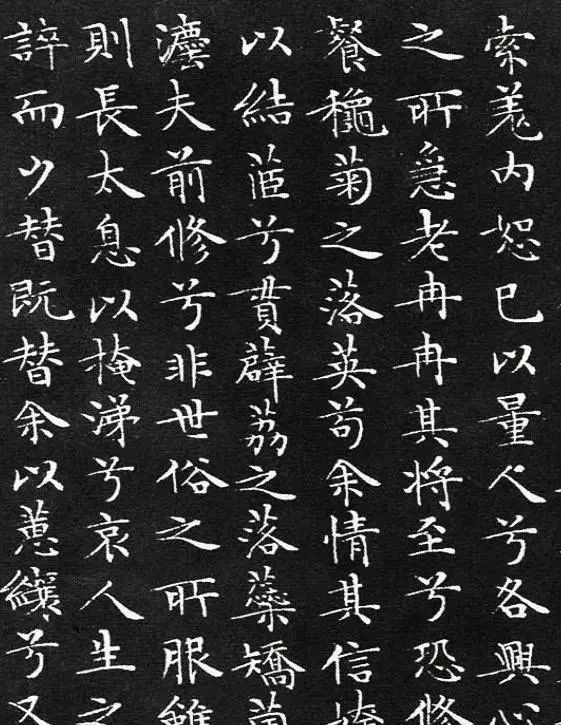 索羌内恕已以量人兮各興心
之所急老冉冉其将至兮恐修
餐龝菊之落英苟余情其信姱
以結茝兮貫薜荔之落蘂矯菌
灋夫前修兮非世俗之所服雖
則長太息以掩涕兮哀人生之
誶而夕替既替余以蕙纕兮又